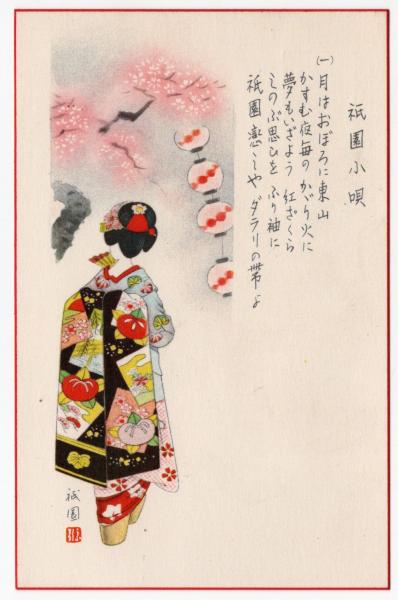 祇園小唄
(一)月はおぼろに東山
かすむ夜毎のかゞり火に
夢もいざよう紅ざくら
しのぶ思ひをふり袖に
祇園恋しやダラリの帯よ
祇園